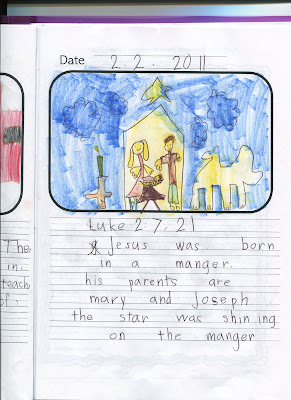 Date 2. 2. 2011
Luke 2:7, 21
Jesus was born
in a manger.
his parents are
mary and Joseph
the star was shining
on the manger
The
in,
teach
of,